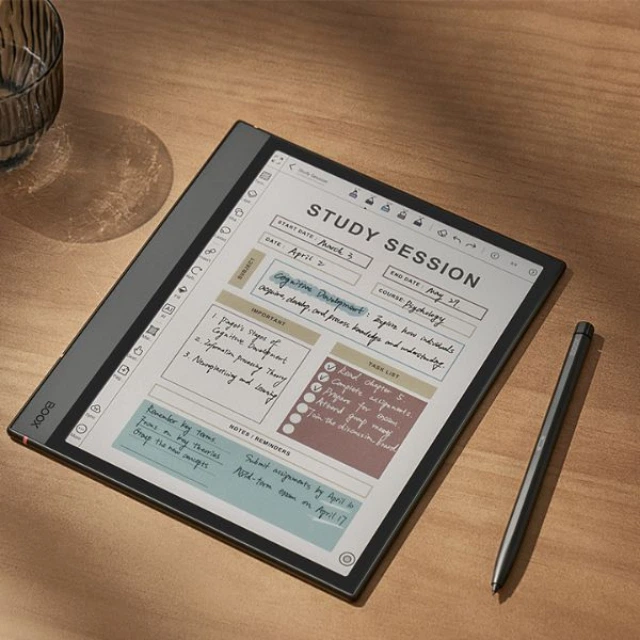 Study Session
STUDY SESSION
START DATE: March 3
END DATE: May 29
DATE: April 2
COURSE: Psychology
SUBJECT
Cognitive Development: Explore how individuals
acquire, develop, and process knowledge and understanding.
IMPORTANT
1. Piaget's Stages of
Cognitive Development
2. Information Processing Theory
3. Neuroplasticity and learning
TASK LIST
Read chapter 5
Complete assignments
Prepare for exam
Attend group
Join the discussion board
NOTES / REMINDERS
Remember key terms
Focus on key theories
Group the new concepts
Submit assignments by April 10
Mid-term exam on April 17
BOOX